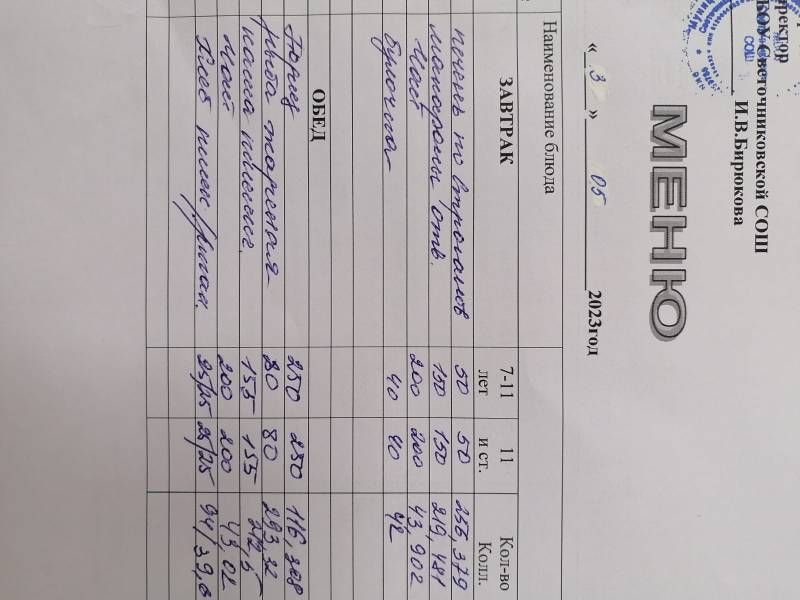 ректор
КОУ Светочниковской СОШ
И.В.Бирюкова
СОШ
МЕНЮ
« 3 » 05 2023год
Наименование блюда 7-11 лет 11 и ст. Кол-во Колл.
ЗАВТРАК
печень по строгановс 50 50 256,379
макароны отв. 150 150 219,481
чай 200 200 43,902
булочка 40 40 42
ОБЕД
250 250 116,388
рыба жареная 80 80 293,32
каша 155 155 212,5
чай 200 200 43,02
Хлеб пшен/ржан. 25/25 25/25 94/39,6